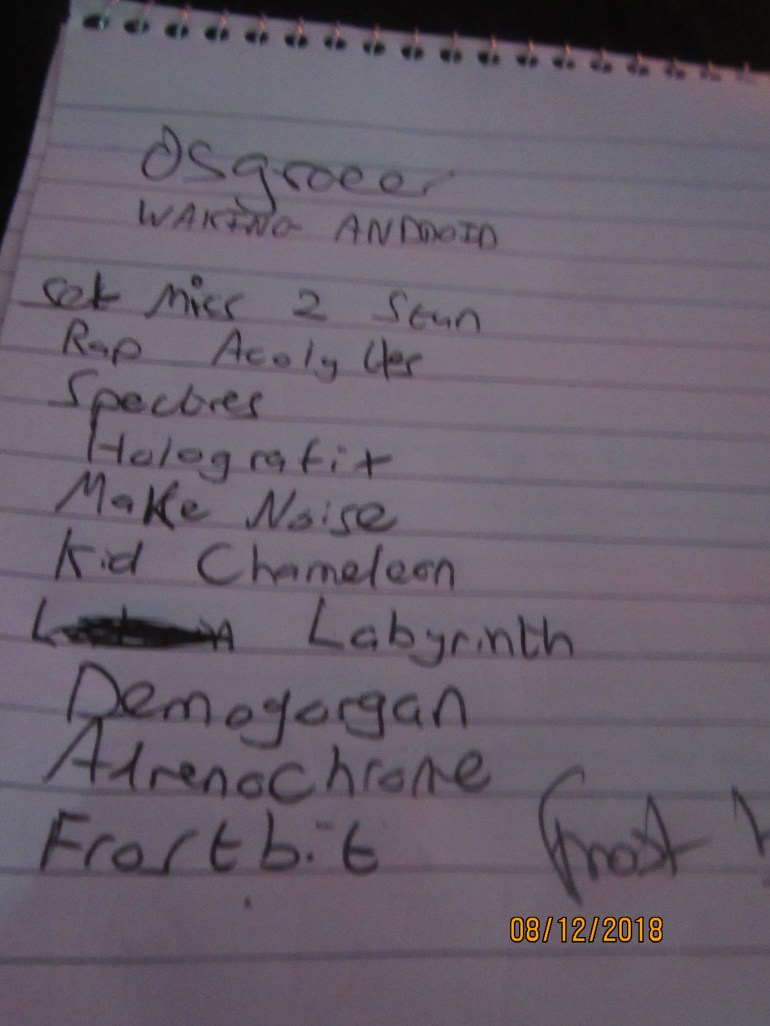 Osgrocer
WAKING ANDROID
set Miss 2 Stun
Rap Acolytes
Spectres
Holografix
Make Noise
Kid Chameleon
Labyrinth
Demogorgan
Adrenochrome
Frostbit
frost
08/12/2018